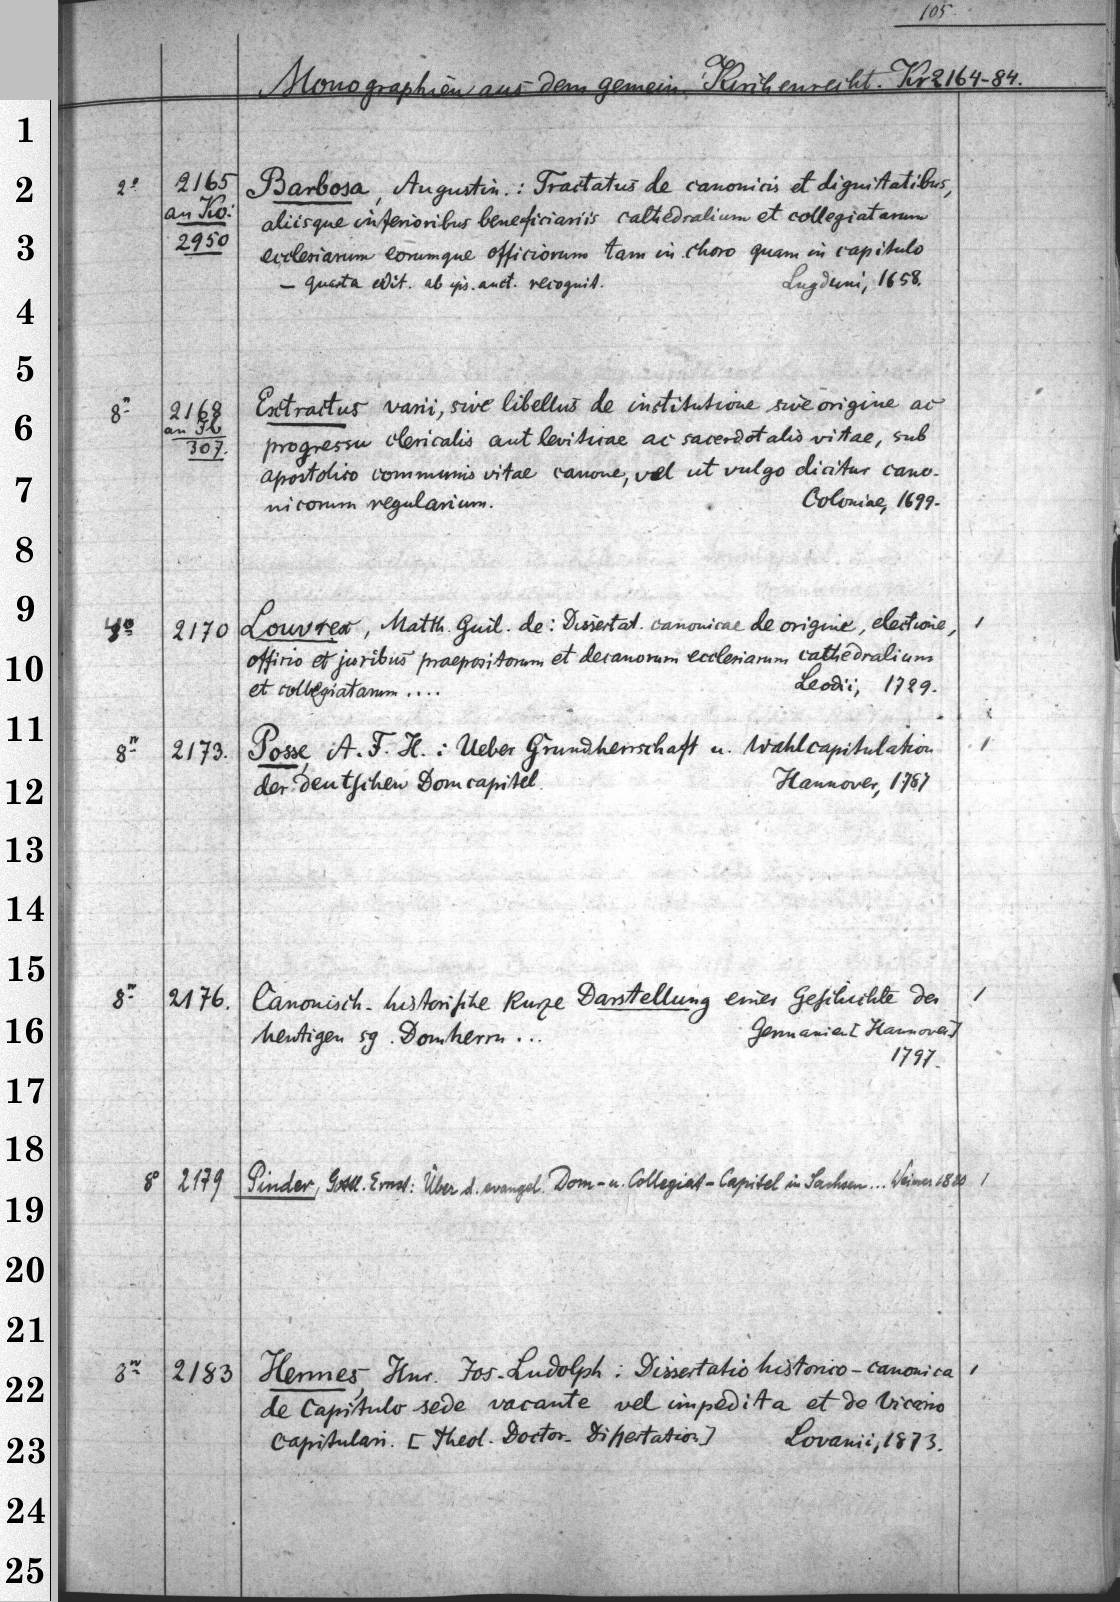 105.
Monographien aus dem gemein. Kirchenrecht. Kr 2164-84.
1
2
3
4
5
6
7
8
9
10
11
12
13
14
15
16
17
18
19
20
21
22
23
24
25
2° 2165 Barbosa, Augustin.: Tractatus de canonicis et dignitatibus,
an Ko: aliisque inferioribus beneficiariis cathedralium et collegiatarum
2950 ecclesiarum eorumque officiorum tam in choro quam in capitulo
— quarta edit. ab ips. auct. recognit. Lugduni, 1658.
8° 2168 Extractus varii, sive libellus de institutione sive origine ac
307. progressu clericalis aut leviticae ac sacerdotalis vitae, sub
apostolico communis vitae canone, vel ut vulgo dicitur cano-
nicorum regularium. Coloniae, 1699.
2170 Louvrex, Matth. Guil. de: Dissertat. canonicae de origine, electione, 1
officio et juribus praepositorum et decanorum ecclesiarum cathedralium
et collegiatarum .... Leodii, 1729.
8° 2173. Posse, A. F. H.: Ueber Grundherrschaft u. Wahlcapitulation 1
der deutschen Domcapitel. Hannover, 1787
8° 2176. Canonisch-historische kurze Darstellung einer Geschichte der 1
heutigen sg. Domherrn ... Germanien [Hannover]
1797.
8° 2179 Pinder, Gottl. Ernst: Über d. evangel. Dom- u. Collegiat-Capitel in Sachsen... Weimar 1820 1
8° 2183 Hermes, Hnr. Jos. Ludolph: Dissertatio historico-canonica 1
de Capitulo sede vacante vel impedita et de Vicario
capitulari. [Theol. Doctor-Dissertation] Lovanii, 1873.